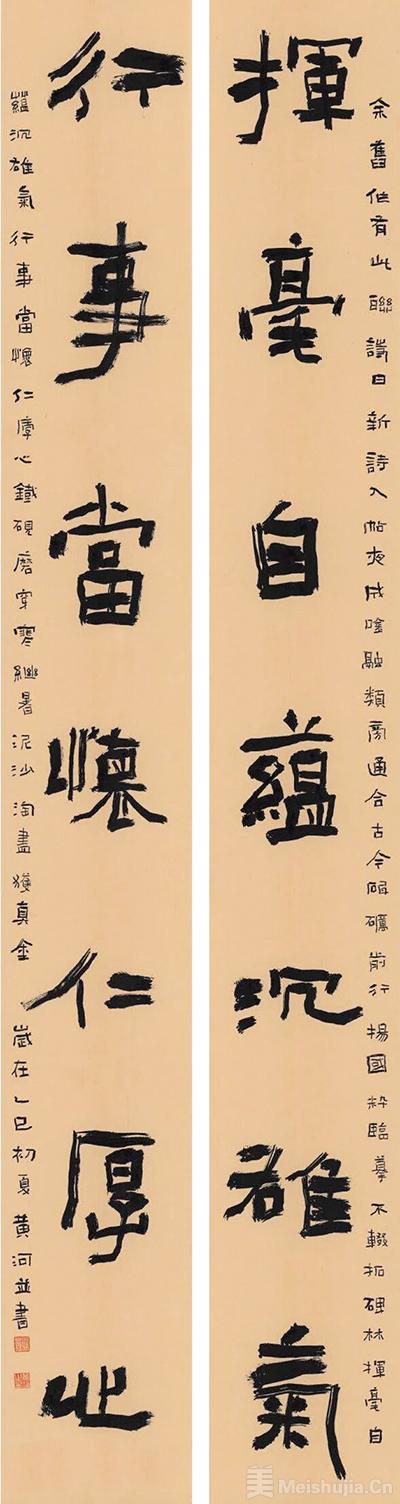 揮毫自蘊沉雄氣
行事當懷仁厚心
余舊作有此聯詩曰新詩入帖夜成吟融類商通合古今砥礪前行揚國粹臨摹不輟拓碑林揮毫自
蘊沉雄氣行事當懷仁厚心鐵硯磨穿寒繼暑泥沙淘盡獲真金歲在乙巳初夏黃河並書
美 Meishujia.Cn